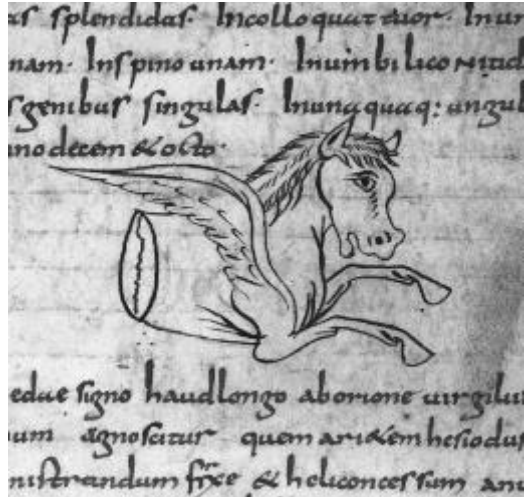 as splendidas. In collo quattuor. In un
nam. In spino unam. In umbilico nitid
s genibus singulas. In unaquaq: ungul
no decem & octo.
ede signo haud longo ab orione uirgiliu
um agnoscitur quem arietem hesiodus
nistrandum & heliconcessum an